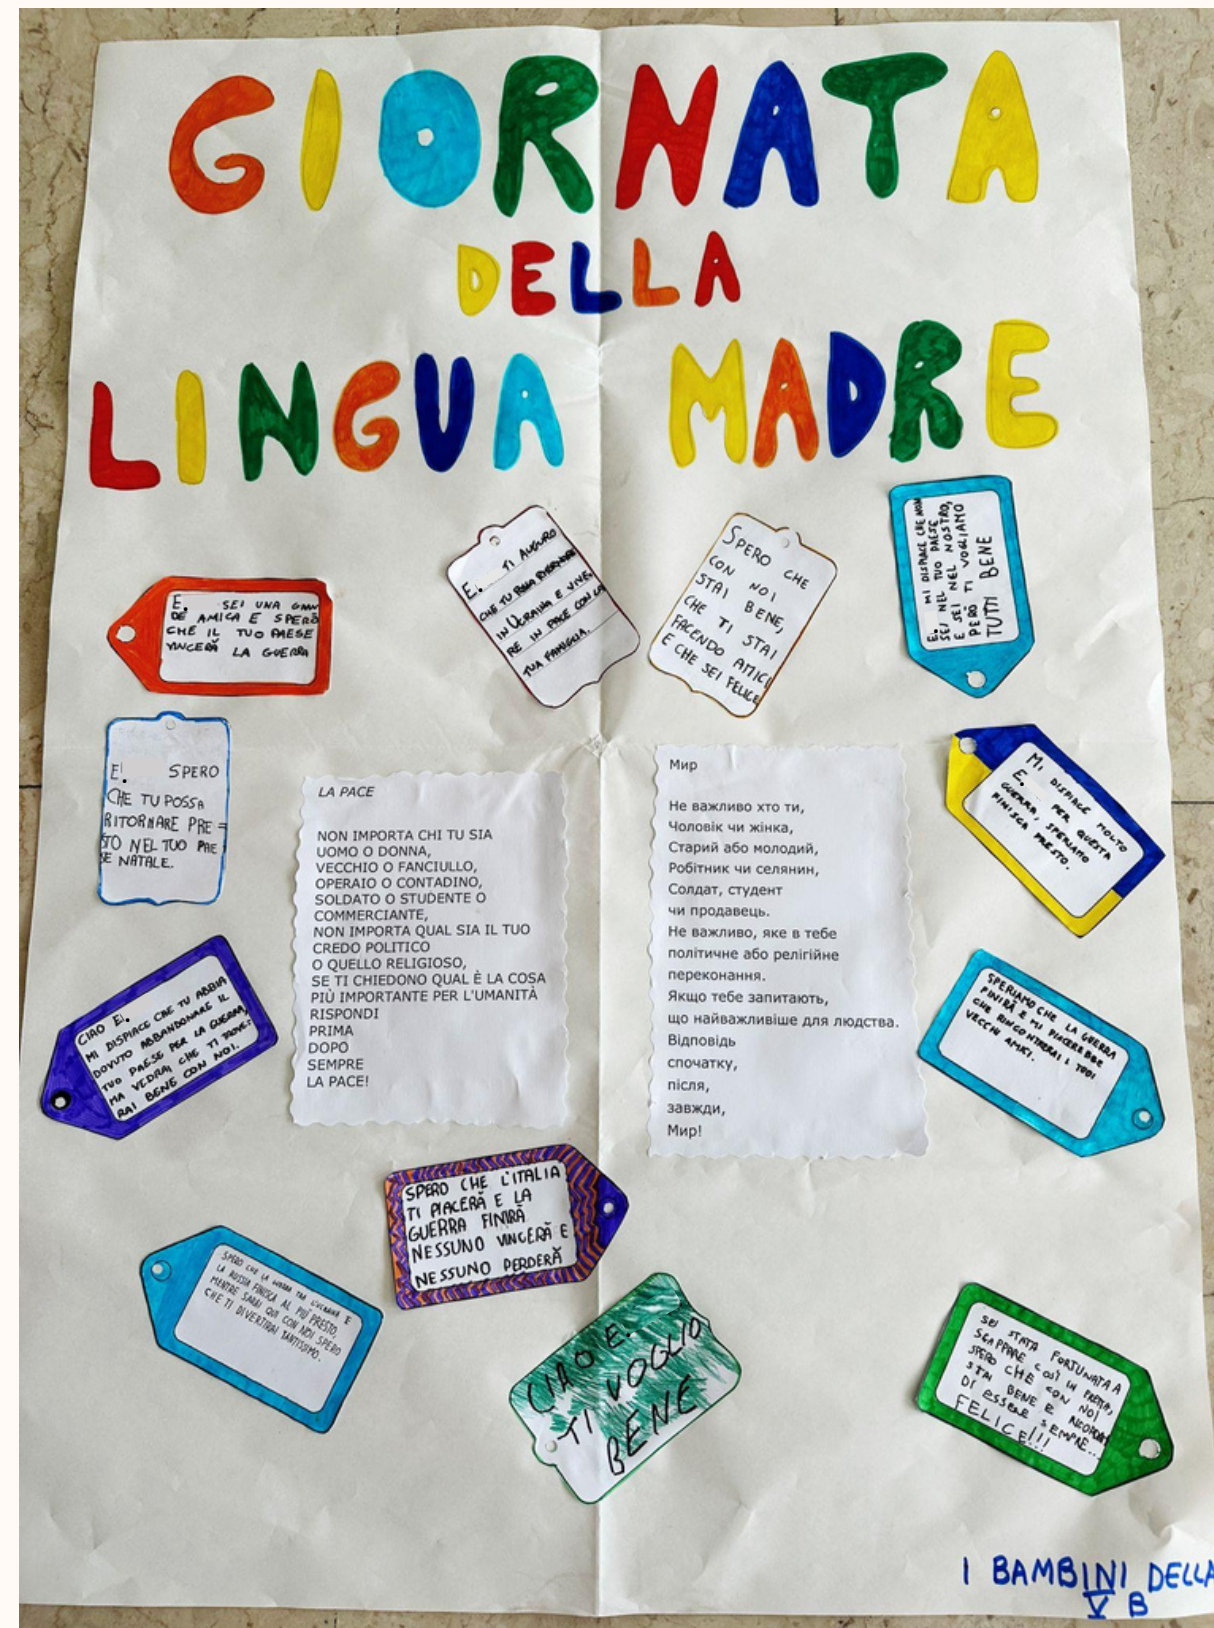 GIORNATA
DELLA
LINGUA MADRE
E. SEI UNA GRAN
DE AMICA E SPERO
CHE IL TUO PAESE
VINCERÀ LA GUERRA
E. TI AUGURO
CHE TU POSSA RITORNARE
IN UCRAINA E VIVE-
RE IN PACE CON LA
TUA FAMIGLIA.
SPERO CHE
CON NOI
STAI BENE,
CHE TI STAI
FACENDO AMICI
E CHE SEI FELICE
E. MI DISPIACE CHE NON
SEI NEL TUO PAESE
E SEI NEL NOSTRO,
PERÒ TI VOGLIAMO
TUTTI BENE
E. SPERO
CHE TU POSSA
RITORNARE PRE=
STO NEL TUO PAE
SE NATALE.
LA PACE
NON IMPORTA CHI TU SIA
UOMO O DONNA,
VECCHIO O FANCIULLO,
OPERAIO O CONTADINO,
SOLDATO O STUDENTE O
COMMERCIANTE,
NON IMPORTA QUAL SIA IL TUO
CREDO POLITICO
O QUELLO RELIGIOSO,
SE TI CHIEDONO QUAL È LA COSA
PIÙ IMPORTANTE PER L'UMANITÀ
RISPONDI
PRIMA
DOPO
SEMPRE
LA PACE!
Мир
Не важливо хто ти,
Чоловік чи жінка,
Старий або молодий,
Робітник чи селянин,
Солдат, студент
чи продавець.
Не важливо, яке в тебе
політичне або релігійне
переконання.
Якщо тебе запитають,
що найважливіше для людства.
Відповідь
спочатку,
після,
завжди,
Мир!
MI DISPIACE MOLTO
E. PER QUESTA
GUERRA, SPERIAMO
FINISCA PRESTO.
CIAO E.
MI DISPIACE CHE TU ABBIA
DOVUTO ABBANDONARE IL
TUO PAESE PER LA GUERRA,
MA VEDRAI CHE TI TROVE-
RAI BENE CON NOI.
SPERIAMO CHE LA GUERRA
FINIRÀ E MI PIACEREBBE
CHE RINCONTRERAI I TUOI
VECCHI AMICI.
SPERO CHE L'ITALIA
TI PIACERÀ E LA
GUERRA FINIRÀ
NESSUNO VINCERÀ E
NESSUNO PERDERÀ
SPERO CHE LA GUERRA TRA L'UCRAINA E
LA RUSSIA FINISCA AL PIÙ PRESTO,
MENTRE SARAI QUI CON NOI SPERO
CHE TI DIVERTIRAI TANTISSIMO.
CIAO E.
TI VOGLIO
BENE
SEI STATA FORTUNATA A
SCAPPARE COSÌ IN FRETTA,
SPERO CHE CON NOI
STAI BENE E
DI ESSERE SEMPRE...
FELICE!!!
I BAMBINI DELLA
V B